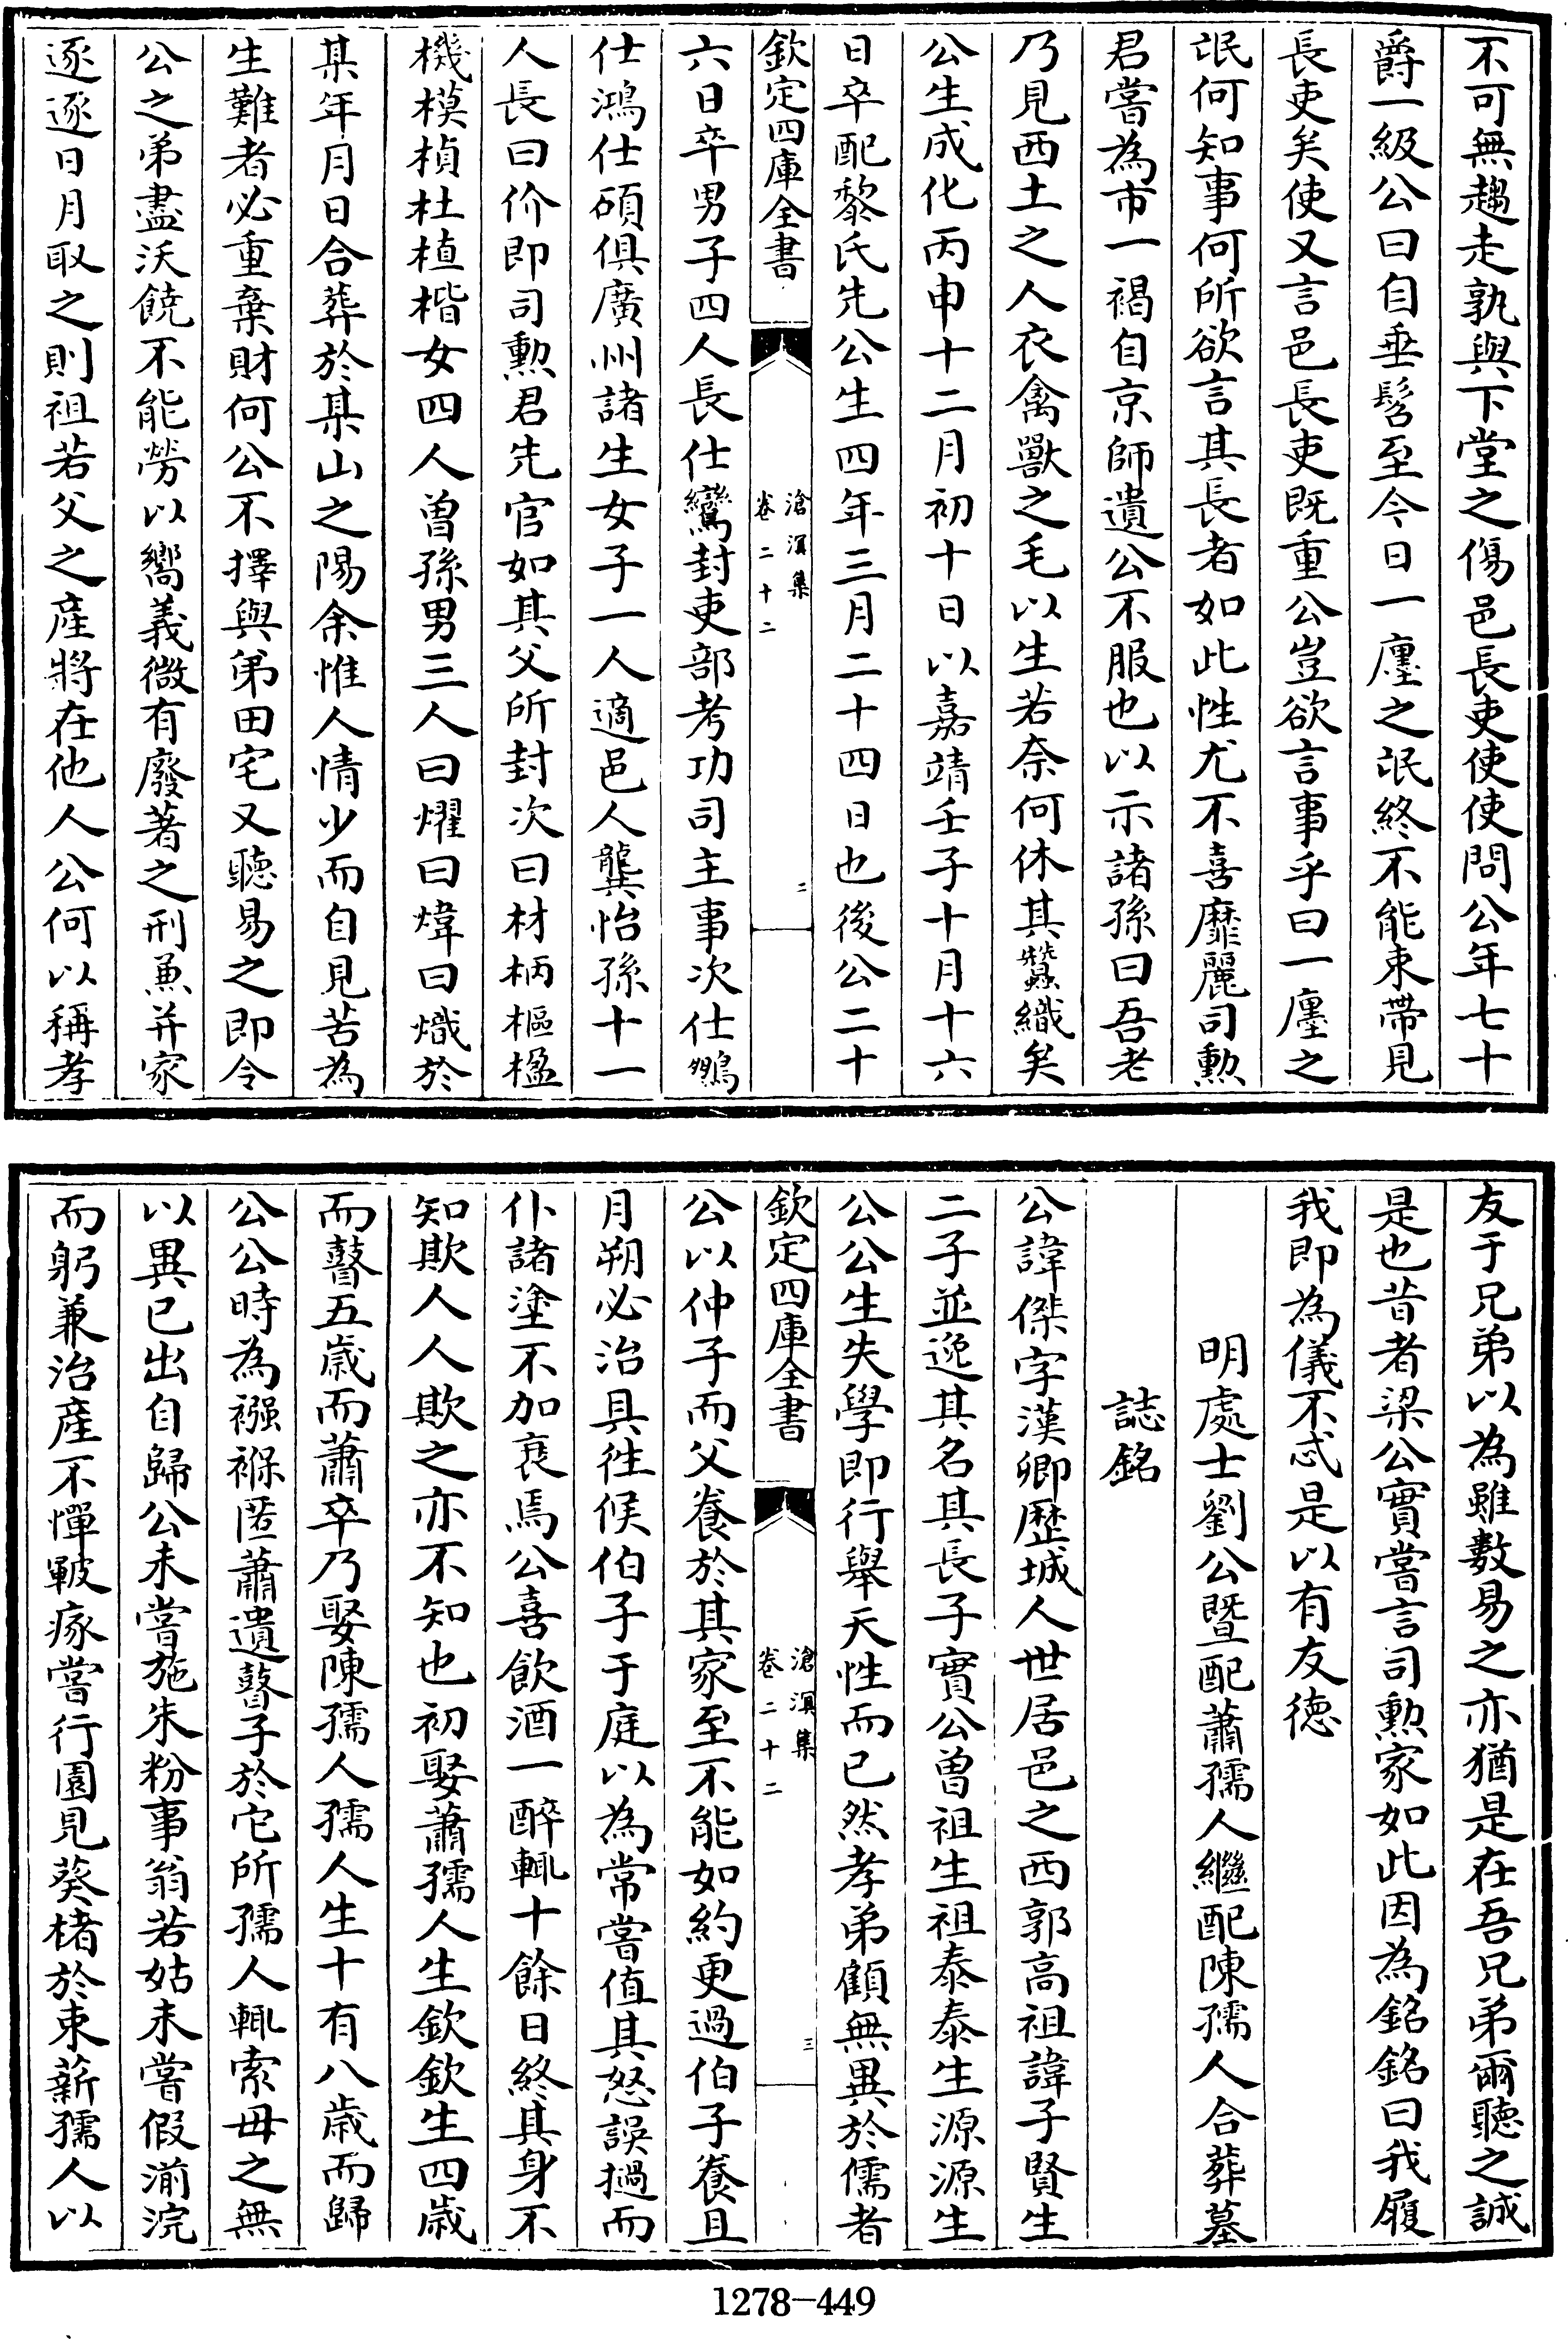 不可無趨走孰與下堂之傷邑長吏使使問公年七十
爵一級公曰自垂髫至今日一廛之氓終不能束帶見
長吏矣使又言邑長吏既重公豈欲言事乎曰一廛之
氓何知事何所欲言其長者如此性尤不喜靡麗司勲
君嘗為市一褐自京師遺公不服也以示諸孫曰吾老
乃見西土之人衣禽獸之毛以生若奈何休其蠶織矣
公生成化丙申十二月初十日以嘉靖壬子十月十六
日卒配黎氏先公生四年三月二十四日也後公二十
欽定四庫全書
滄溟集
卷二十二
二
六日卒男子四人長仕鸞封吏部考功司主事次仕鵬
仕鴻仕碩俱廣州諸生女子一人適邑人龔怡孫十一
人長曰价即司勲君先官如其父所封次曰材柄樞楹
機模楨杜植楷女四人曾孫男三人曰燿曰煒曰熾於
某年月日合葬於某山之陽余惟人情少而自見苦為
生難者必重棄財何公不擇與弟田宅又聽易之即令
公之弟盡沃饒不能勞以嚮義微有廢著之刑兼并家
逐逐日月取之則祖若父之產將在他人公何以稱孝
友于兄弟以為雖數易之亦猶是在吾兄弟爾聽之誠
是也昔者梁公實嘗言司勲家如此因為銘銘曰我履
我即為儀不忒是以有友徳
明處士劉公暨配蕭孺人繼配陳孺人合葬墓
誌銘
公諱傑字漢卿歷城人世居邑之西郭高祖諱子賢生
二子並逸其名其長子實公曾祖生祖泰泰生源源生
公公生失學即行舉天性而已然孝弟顧無異於儒者
欽定四庫全書
滄溟集
卷二十二
三
公以仲子而父養於其家至不能如約更過伯子養且
月朔必治具徃候伯子于庭以為常嘗值其怒誤撾而
仆諸塗不加衰焉公喜飲酒一醉輒十餘日終其身不
知欺人人欺之亦不知也初娶蕭孺人生欽欽生四歲
而瞽五歲而蕭卒乃娶陳孺人孺人生十有八歲而歸
公公時為襁褓匿蕭遺瞽子於它所孺人輒索毋之無
以異已出自歸公未嘗施朱粉事翁若姑未嘗假湔浣
而躬兼治產不憚皸瘃嘗行園見葵楮於束薪孺人以
1278-449